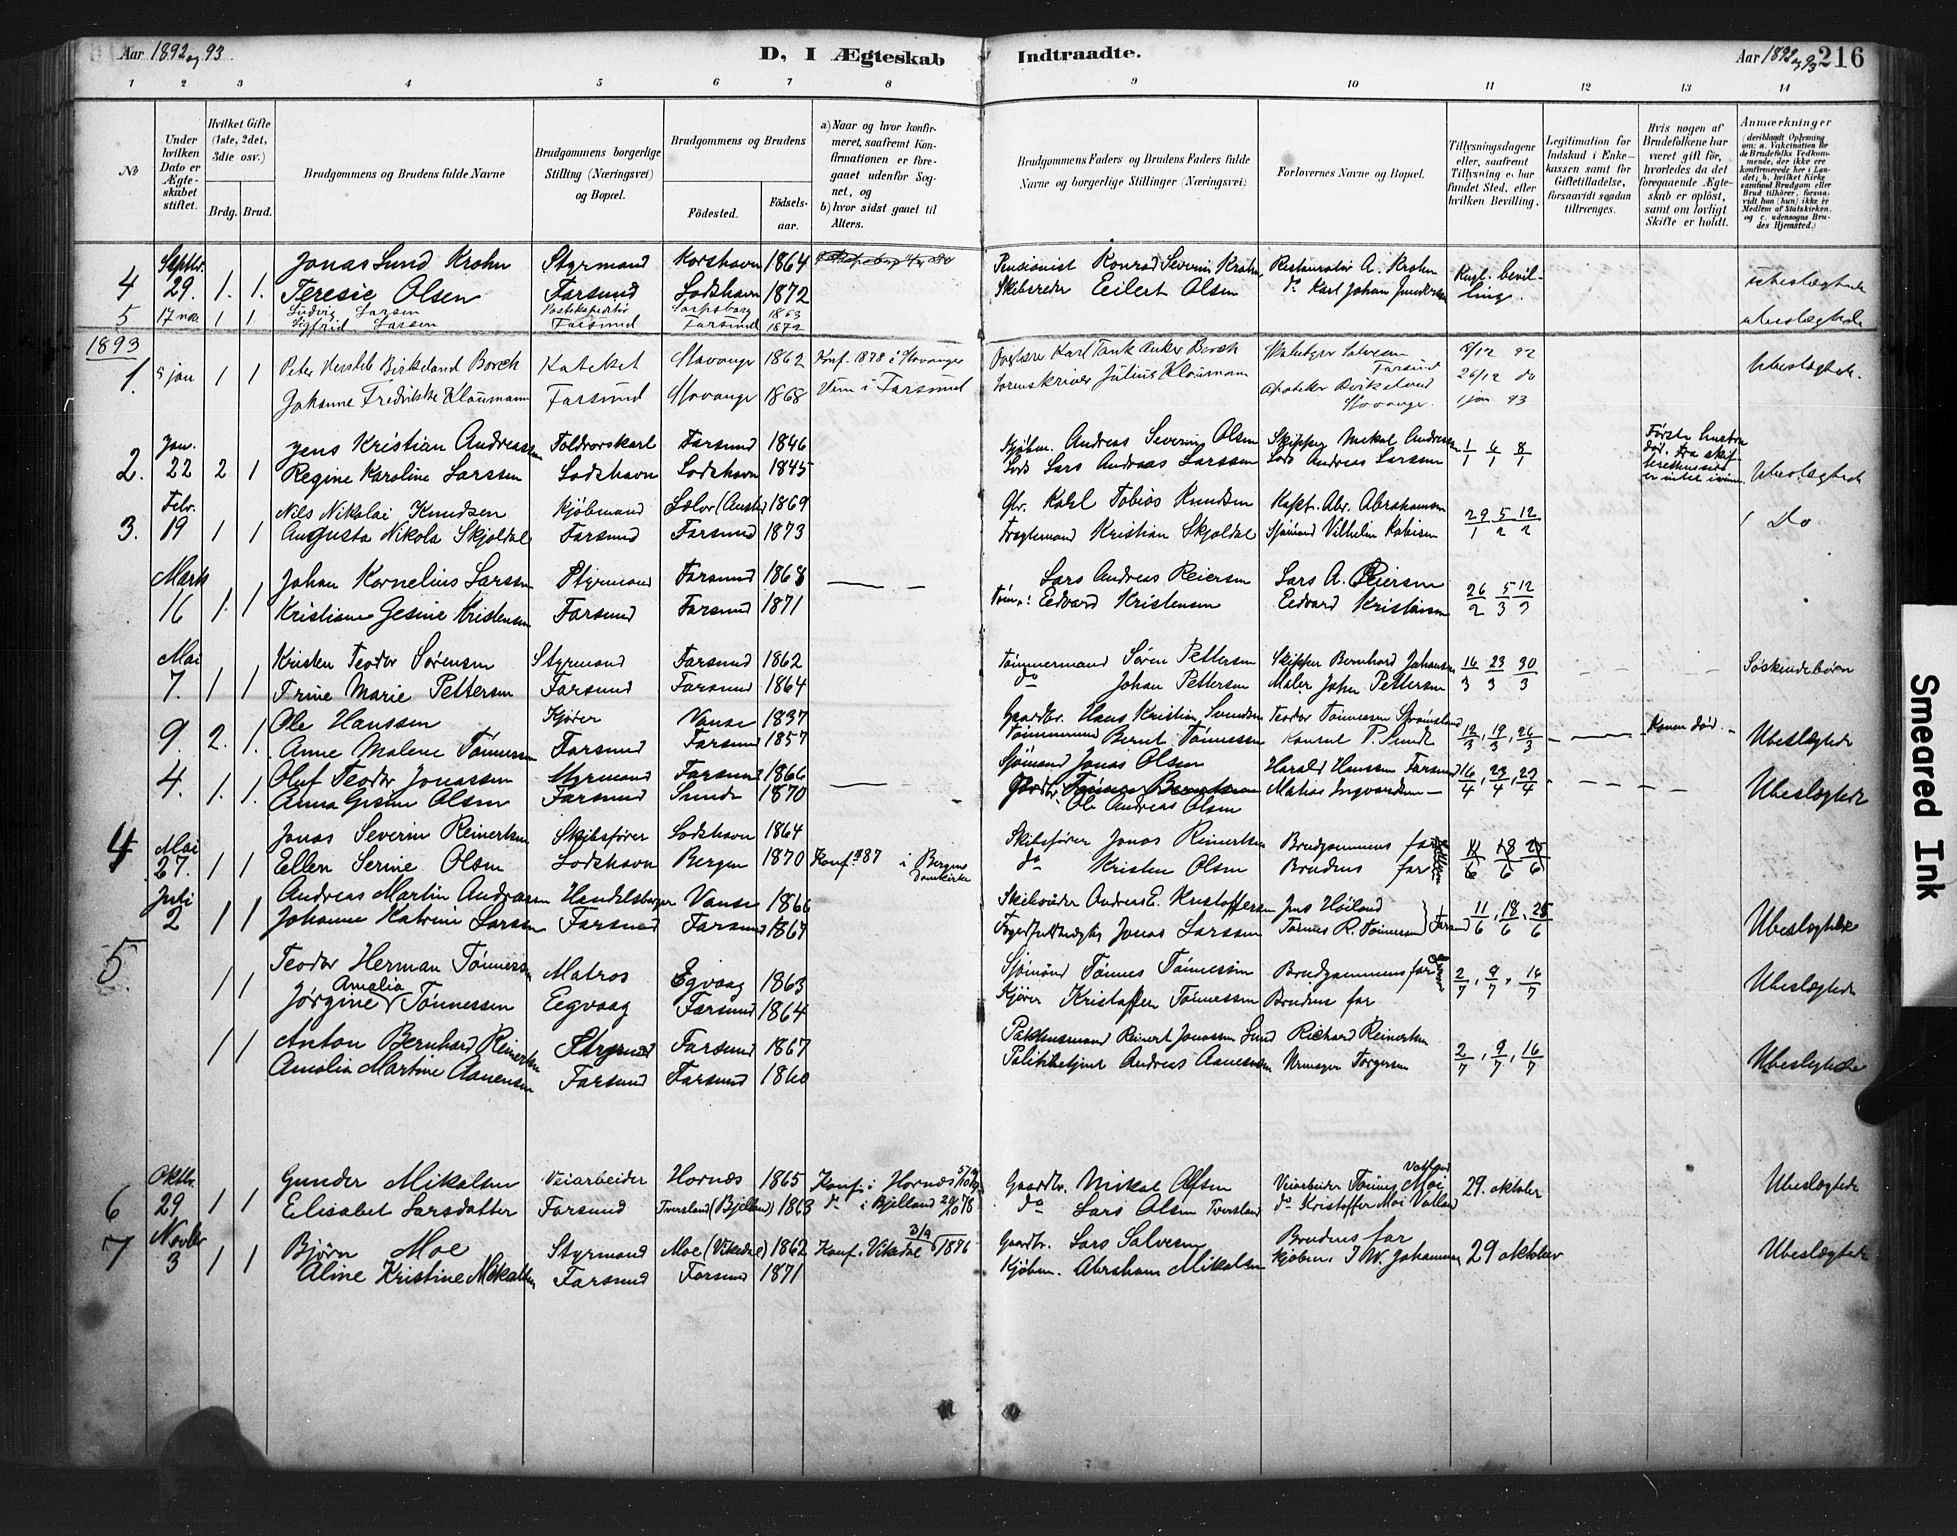 Aar 1892 og 93. D, I Ægteskab Indtraadte. Aar 1892 og 93 216
1 2 3 4 5 6 7 8 9 10 11 12 13 14
No
Under hvilken Dato er Ægteskabet stiftet.
Hvilket Gifte (1ste, 2det, 3die osv.)
Brdg. Brud.
Brudgommens og Brudens fulde Navne
Brudgommens borgerlige Stilling (Næringsvei) og Bopæl.
Brudgommens og Brudens
Födested. Födsels-aar.
a) Naar og hvor konfirmeret, saafremt Konfirmationen er foregaaet udenfor Sognet, og
b) hvor sidst gaaet til Alters.
Brudgommens Faders og Brudens Faders fulde Navne og borgerlige Stillinger (Næringsvei)
Forlovernes Navne og Bopæl.
Tillysningsdagene eller, saafremt Tillysning ei har fundet Sted, efter hvilken Bevilling.
Legitimation for Indskud i Enkekassen samt for Giftetilladelse, forsaavidt saadan tiltrænges.
Hvis nogen af Brudefolkene har været gift för, hvorledes da det foregaaende Ægteskab er oplöst, samt om lovligt Skifte er holdt.
Anmærkninger (deriblandt Oplysning om: a. Vakcination for de Brudefolks Vedkommende, der ikke ere konfirmerede her i Landet; b. hvilket Kirkesamfund Brudgom eller Brud tilhörer, forsaavidt han (hun) ikke er Medlem af Statskirken, og c. udensogns Brudes Hjemsted.)
4 Septbr. 29. 1. 1. Jonas Lund Krohn Styrmand Korshavn 1864 Pensionist Konrad Severin Krohn Restauratør A. Krohn Kngl. bevilling. ubeslægtede
Teresie Olsen Farsund Lodshavn 1872 Skibsreder Eilert Olsen do Karl Johan
5 17 nov. 1 1 Ludvig Larsen Postekspeditør Sarpsborg 1863 ubeslægtede
Sigfrid Larsen Farsund Farsund 1872
1893
1. 5 jan 1 1 Peter Birkeland Borch Kateket Stavanger 1862 Konf. 1878 i Stavanger Karl Tank Anker Borch Salvesen Farsund 8/12 92 Ubeslægtede.
Johanne Fredrikke Kloumann Farsund Stavanger 1868 i Farsund Sorenskriver Julius Kloumann Apotheker Stavanger. 26/12 do 1 jan 93
2. Jan. 22 2 1 Jens Kristian Andreassen Toldrorskarl Farsund 1846 Kjøbm. Andreas Severin Olsen Skipper Mikal Andreassen 1/1 6/1 8/1 Første hustru død. Ubeslægtede
Regine Karoline Larssen Lodshavn Lodshavn 1845 Lods Lars Andreas Larssen Lods Andreas Larssen
3. Febr. 19 1 1 Nils Nikolai Knudsen Kjøbmand 1869 Gbr. Karl Tobias Knudsen Kapt. Abr. Abrahamsen 29/1 5/2 12/2 Do
Augusta Nikola Skjoldal Farsund Farsund 1873 Fragtemand Kristian Skjoldal Sjømand Vilhelm
Marts 16 1. 1 Johan Kornelius Larssen Styrmand Farsund 1868 — — Lars Andreas Reiersen Lars A. Reiersen 26/2 5/3 12/3
Kristiane Gesine Kristensen Farsund Farsund 1871 Tøm.: Eedvard Kristensen Eedvard Kristensen
Mai 7. 1 1 Kristen Teodor Sørensen Styrmand Farsund 1862 Tømmermand Søren Pettersen Skipper Bernhard Johansen 16/3 23/3 30/3 — — Søskendebørn
Trine Marie Pettersen Farsund Farsund 1864 do Johan Pettersen Maler John Pettersen
9. 2. 1. Ole Hanssen Kjører Vanse 1837 Gaardbr. Hans Kristian Svendsen Teodor Tønnessen 12/3, 19/3, 26/3 — — Konen død. Ubeslægtede
Anne Malene Tønnessen Farsund Farsund 1857 Tømmermand Bernt Tønnessen Konsul P. Sunde
4. 1. 1. Oluf Teodor Jonassen Styrmand Farsund 1866 — Sjømand Jonas Olsen Harald Hanssen Farsund 16/4, 23/4, 23/4 — — Ubeslægtede
Anna Gesine Olsen Farsund Sunde 1870 Gaardbr. Tønnes Berntsen Matias Ingvardsen —
Ole Andreas Olsen
4 Mai 27. 1 1 Jonas Severin Reinertsen Skibsfører Lodshavn 1864 Skibsfører Jonas Reinertsen Brudgommens far 11/6 18/6 25/6
Ellen Serine Olsen Lodshavn Bergen 1870 Konf. 87 i Bergens Domkirke do Kristen Olsen Brudens far
Juli 2 1 1 Andreas Martin Andreassen Handelsborger Vanse 1866 Andreas E. Kristoffersen Jens Høiland Farsund 11/6, 18/6, 25/6 Ubeslægtede
Johanne Katrine Larssen Farsund Farsund 1867 Jonas Larssen Tønnes R. Tønnessen
5 1 1 Teodor Herman Tønnessen Matros Egvaag 1863 Sjømand Tønnes Tønnessen Brudgommens far 2/7, 9/7, 16/7 Ubeslægtede
Jørgine Amalia Tønnessen Eegvaag Farsund 1864 Kjører Kristoffer Tønnessen Brudens far
1 1 Anton Bernhard Reinertsen Styrmand Farsund 1867 Pakhusmand Reinert Jonassen Lund Richard Reinertsen 2/7, 9/7, 16/7 Ubeslægtede
Amalia Martine Aanensen Farsund Farsund 1860 Politibetjent Andreas Aanensen Urmager Torgersen
6 Oktbr. 29 1 1 Gunder Mikalsen Veiarbeider Hornæs 1865 Konf. i Hornæs Gaardbr. Mikal Olsen Veiarbeider Tønnes Moi Vatland 29. oktober Ubeslægtede
Elisabet Larsdatter Farsund Tversland (Bjelland) 1863 do i Bjelland 20/10 78 do Lars Olsen Tversland do Kristoffer Moi Vatland
7 Novbr 3 1 1 Bjørn Moe Styrmand Moe (Vikedal) 1862 Konf. i Vikedal 3/9 1876 Gaardbr. Lars Salvesen Brudens far 29 oktober Ubeslægtede
Aline Kristine Mikalsen Farsund Farsund 1871 Kjøbm. Abraham Mikalsen Kjøbm. J W. Johannesen
Smeared Ink